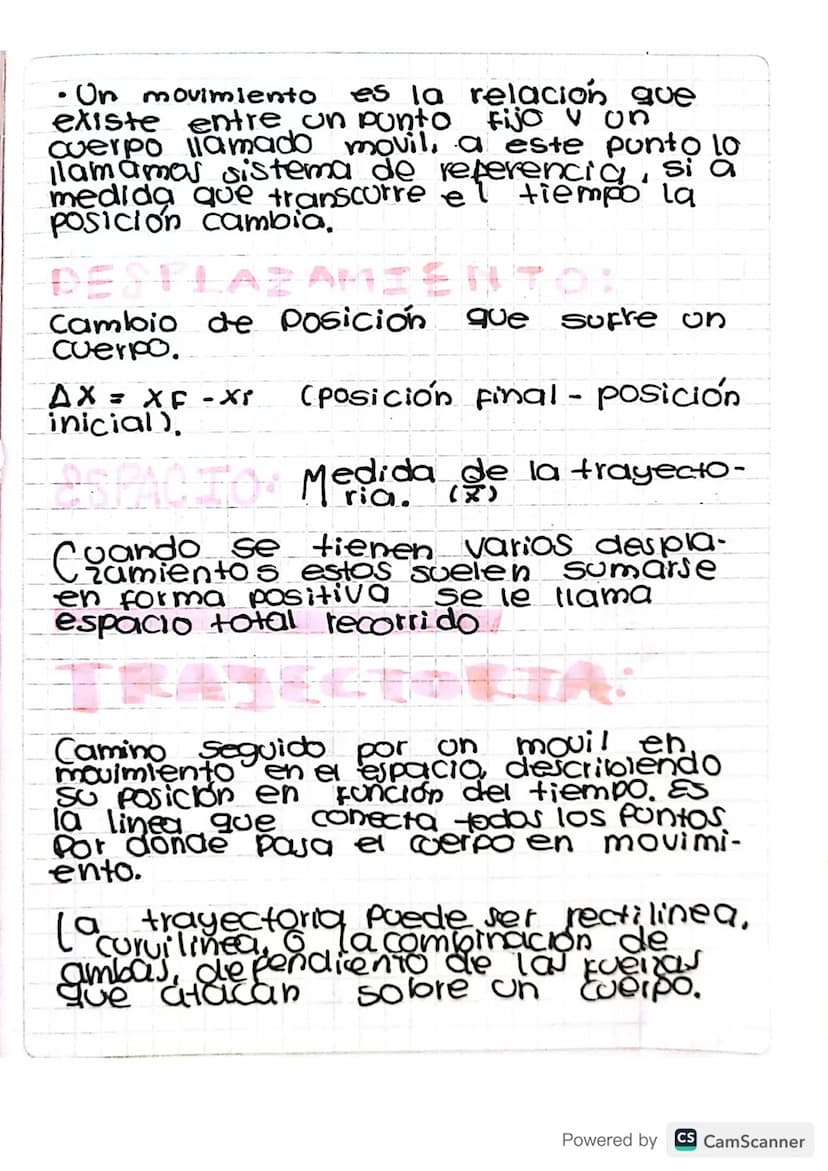 · Un movimiento es la relación que
existe entre un punto fijo y un
cuerpo llamado movil, a este punto lo
llamamos sistema de referencia, si a
medida que transcurre el tiempo la
posición cambia.
DESPLAZAMIENTO:
Cambio de Posición que sufre un
cuerpo.
ΔX = XF - XI (posición final - posición
inicial).
ESPACIO: Medida de la trayecto-
ria. (x̄)
Cuando se tienen varios despla-
zamientos estos suelen sumarse
en forma positiva se le llama
espacio total recorrido
TRAJECTORIA:
Camino seguido por un movil en
movimiento en el espacio, describiendo
su posición en función del tiempo. Es
la linea que conecta todos los puntos
por donde pasa el cuerpo en movimi-
ento.
La trayectoria puede ser rectilinea,
curvilinea, o la combinación de
ambas, dependiento de las fuerzas
que atacan sobre un cuerpo.
Powered by CS CamScanner